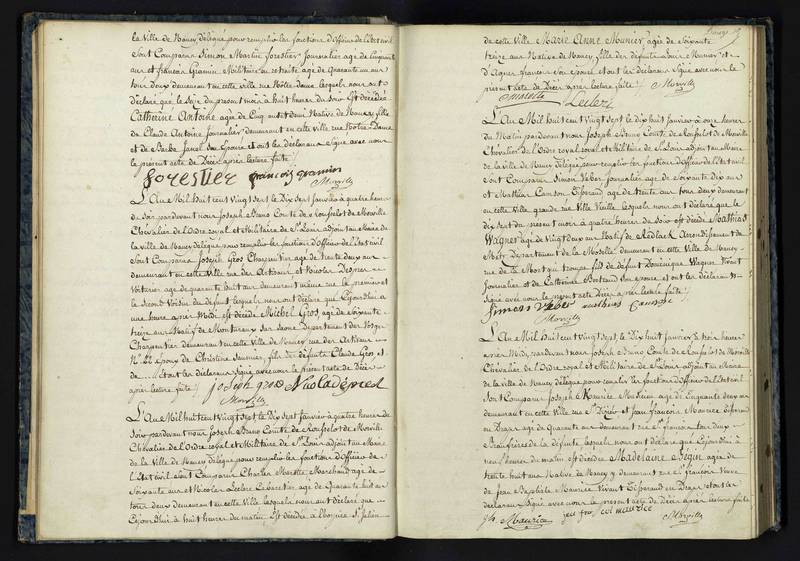 la Ville de Nancy délégué pour remplir les fonctions d'officier de l'état civil
Sont Comparus Simon Martin forestier Journalier agé de Cinquante
ans et françois Gramen Militaire en retraite agé de Quarante un ans
tous deux demeurant en cette ville rue Notre-Dame lesquels nous ont
déclaré que le Seize du présent mois à huit heures du soir Est décédée
Catherine Antoine agée de Cinq ans et demi Native de Nancy fille
de Claude Antoine Journalier demeurant en cette ville rue Notre-Dame
et de Barbe Janel son Epouse et ont les déclarans signé avec nous
le présent acte de Décès après lecture faite.
forestier françois gramien
Morville
L'An Mil huit cent vingt sept le Dix sept Janvier à quatre heures
du soir pardevant nous Joseph Bruno Comte de Rousselot de Morville
Chevalier de l'Ordre royal et Militaire de St. Louis adjoint au Maire
de la ville de Nancy délégué pour remplir les fonctions d'officier de l'état civil
Sont Comparus Joseph Gros Charpentier agé de trente deux ans
demeurant en cette Ville rue des Artisans et Nicolas Despres
Voiturier agé de quarante huit ans demeurant même rue le premier et
le second Voisin du défunt lesquels nous ont déclaré que Cejourd'hui à
une heure après Midi Est décédé Michel Gros, agé de Soixante
treize ans Natif de Montureux sur Saone Département des Vosges
Charpentier demeurant en cette Ville de Nancy rue des Artisans
No. 22 Epoux de Christine Saunier, fils des défunts Claude Gros et
de ... et ont les déclarans signé avec nous le présent acte de Décès
après lecture faite.
joseph gros Nicola dépred
Morville
L'An Mil huit cent Vingt sept le Dix sept Janvier à quatre heures du
Soir pardevant nous Joseph Bruno Comte de Rousselot de Morville
Chevalier de l'Ordre royal et Militaire de St. Louis adjoint au Maire
de la Ville de Nancy Délégué pour remplir les fonctions d'officier de
l'Etat civil sont Comparus Charles Marotte Marchand agé de
Soixante ans et Nicolas Leclerc Cabaretier agé de Quarante huit ans
tous deux demeurant en cette Ville lesquels nous ont déclaré que
Cejourd'hui à huit heures du matin Est décédée à l'hospice St. Julien
de cette Ville Marie Anne Munier agée de Soixante
treize ans Native de Nancy, fille des défunts Louis Munier et
d'Agnes françois son Epouse et ont les déclarans signé avec nous le
présent acte de Décès après lecture faite.
Marotte Leclerc Morville
L'An Mil huit cent vingt sept le Dix huit Janvier à onze heures
du Matin pardevant nous Joseph Bruno Comte de Rousselot de Morville
Chevalier de l'Ordre royal et Militaire de St. Louis adjoint au Maire
de la ville de Nancy délégué pour remplir les fonctions d'officier de l'Etat civil
Sont Comparus Simon Veber Journalier agé de Soixante dix ans
et Mathias Canson Tisserand agé de trente six ans tous deux demeurant
en cette Ville grande rue Ville Vieille lesquels nous ont déclaré que le
dix sept du présent mois à quatre heures du Soir est décédé Mathias
Wagner agé de Vingt deux ans Natif de Arrondissement de
Metz Département de la Moselle demeurant en cette Ville de Nancy
rue de la Monnaye fils de défunt Dominique Wagner Vivant
Journalier et de Catherine Bertrand son Epouse et ont les déclarans
Signé avec nous le présent acte de Décès après lecture faite.
Simon Veber
Morville
L'An Mil huit cent vingt sept, le Dix huit Janvier à trois heures
après Midi, pardevant nous Joseph Bruno Comte de Rousselot de Morville
Chevalier de l'Ordre royal et Militaire de St. Louis adjoint au Maire
de la ville de Nancy, délégué pour remplir les fonctions d'officier de l'Etat civil
Sont Comparus Joseph Maurice Marchand agé de Cinquante deux ans
demeurant en cette Ville rue St. Dizier et Jean françois Maurice Tisserand
en Draps agé de Quarante ans demeurant rue St. françois tous deux
Beaufrères de la défunte lesquels nous ont déclaré que Cejourd'hui à
neuf heures du matin est décédée Madelaine Séguin agée de
trente huit ans Native de Nancy y demeurant rue St. françois Veuve
de Jean Baptiste Maurice Vivant Tisserand en Draps et ont les
déclarans Signé avec nous le présent acte de Décès après lecture faite
Jh. Maurice jean fran. col maurice Morville